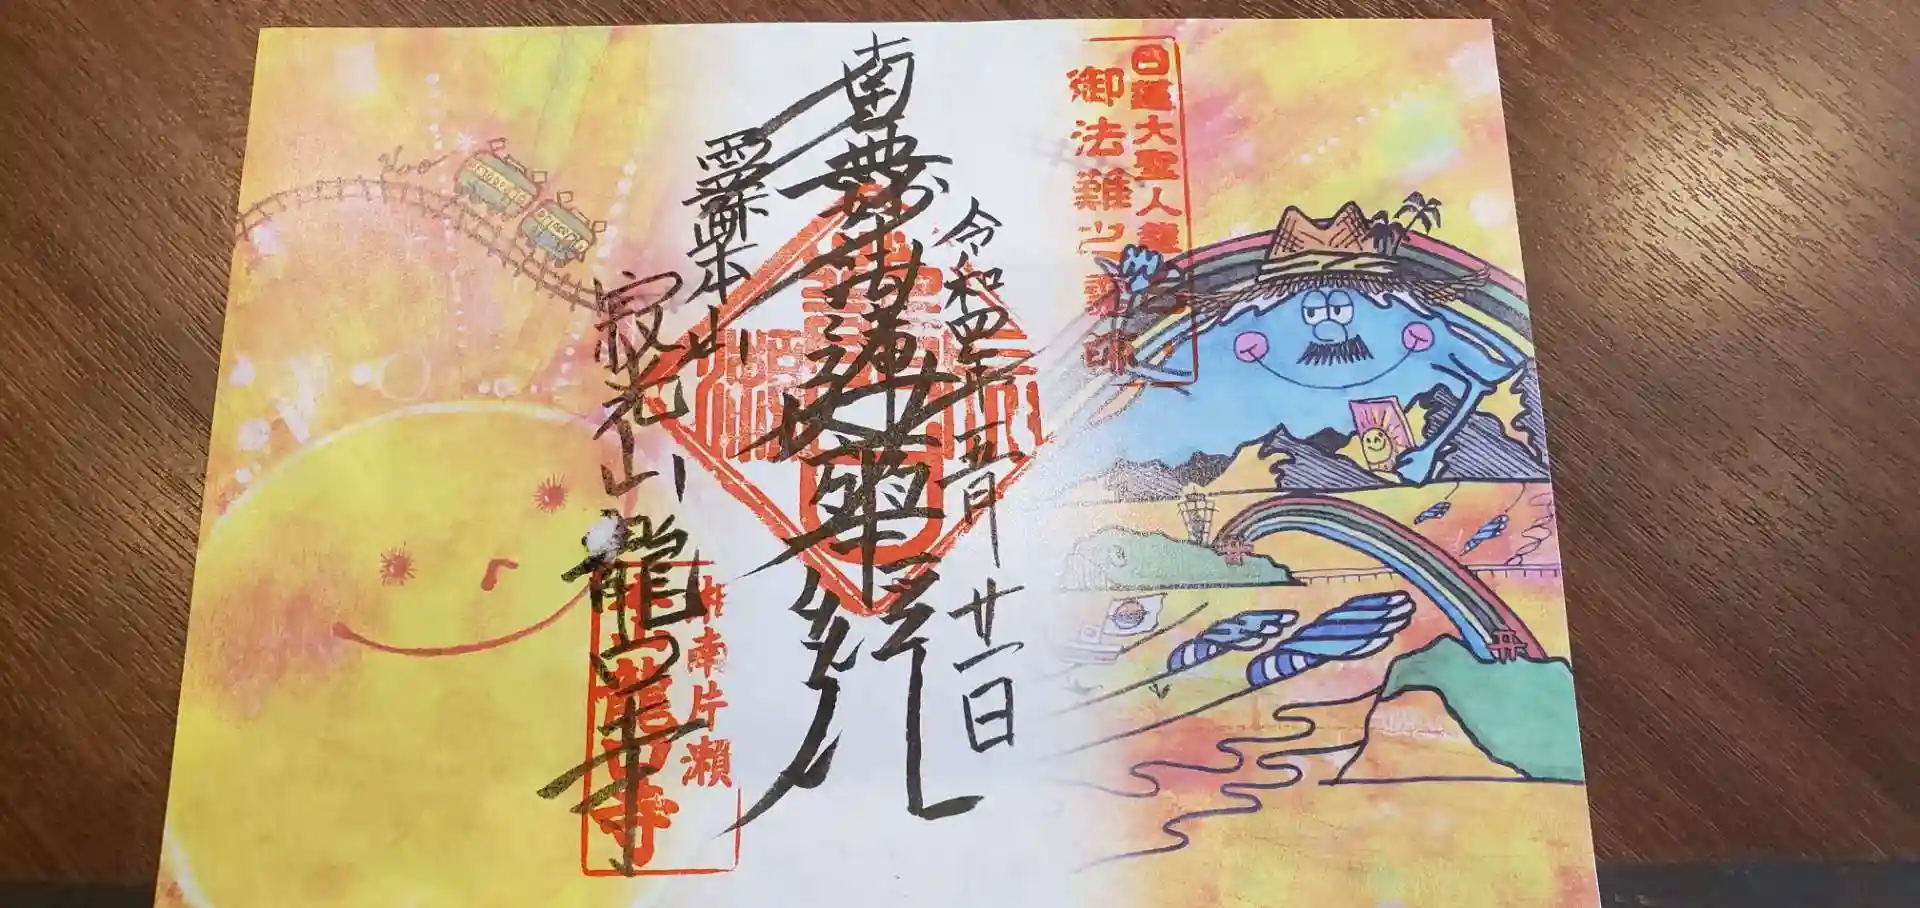 日蓮大聖人
御法難
令和四年五月廿一日
南無妙法蓮華経
霊蹟本山
寂光山龍口寺
湘南片瀬
龍口寺